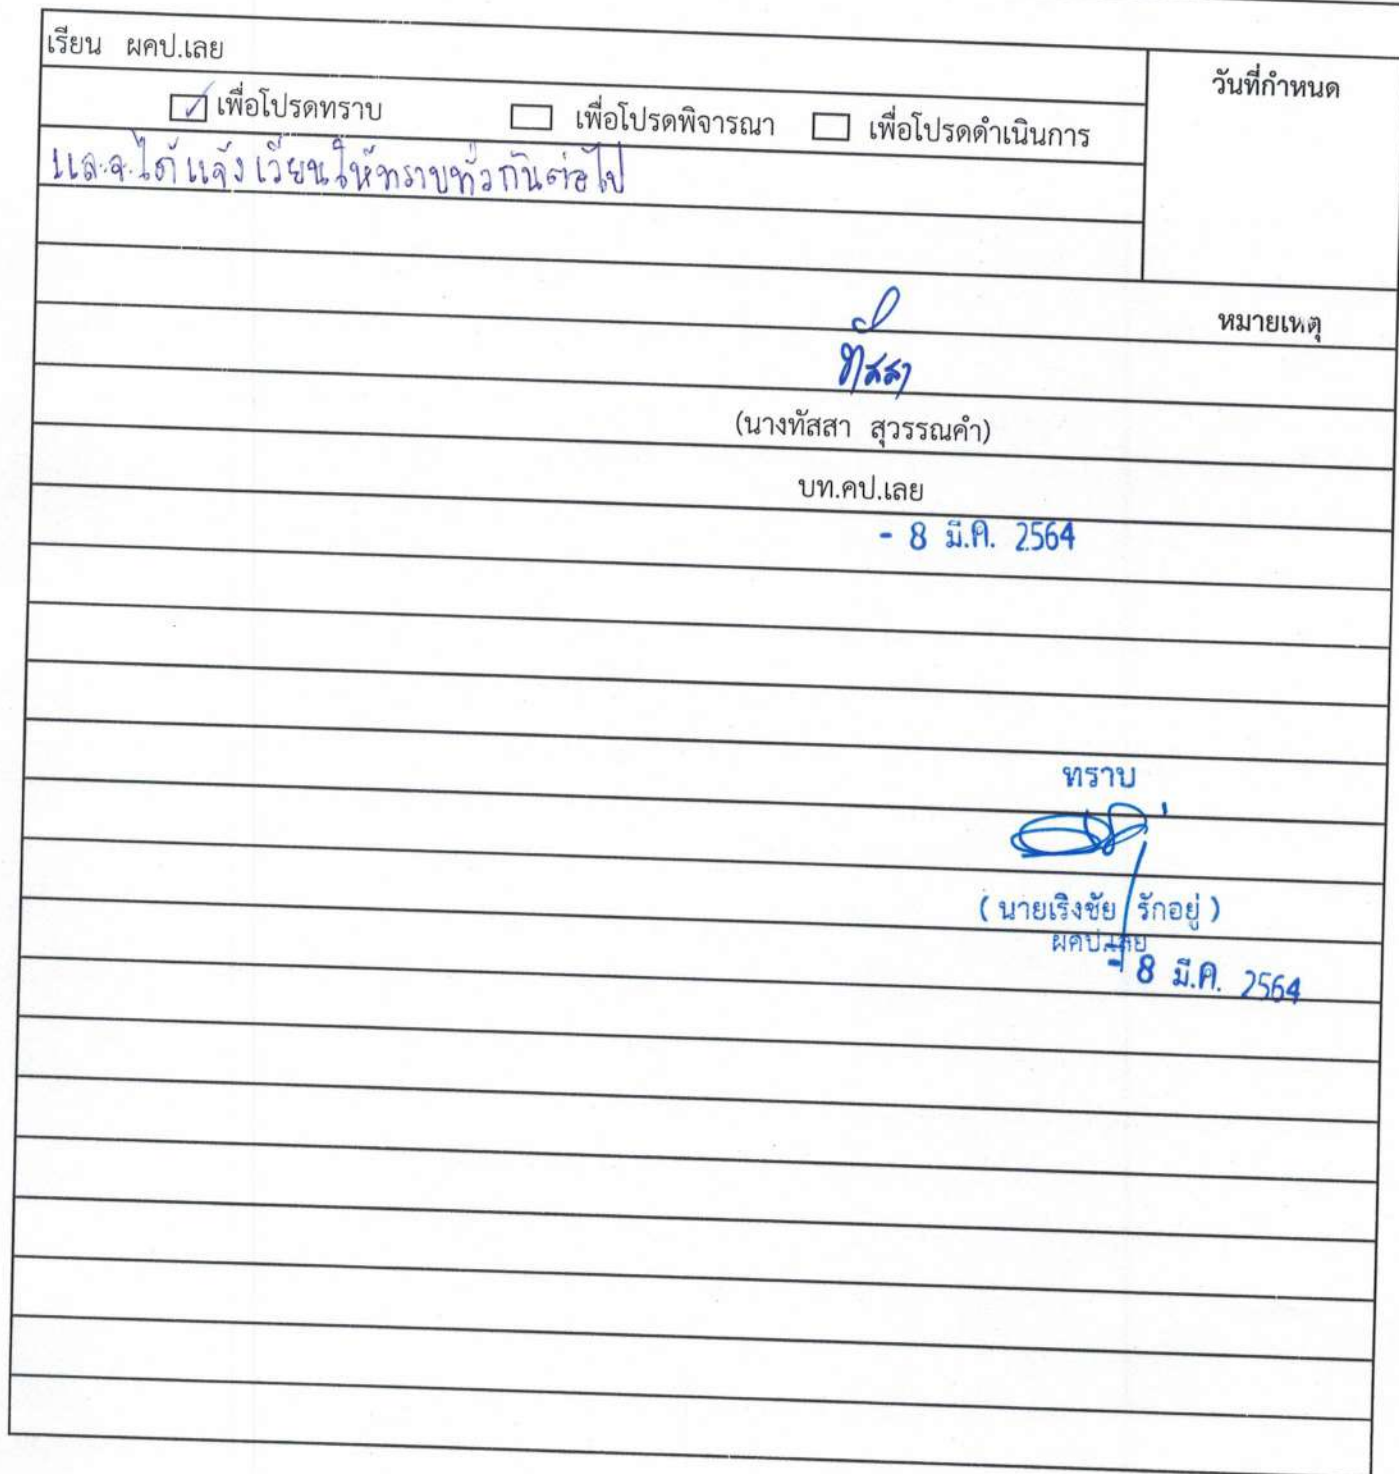 เรียน ผคป.เลย
วันที่กำหนด
เพื่อโปรดทราบ เพื่อโปรดพิจารณา เพื่อโปรดดำเนินการ
และจะได้แจ้งเวียนให้ทราบทั่วกันต่อไป
หมายเหตุ
ทัสสา
(นางทัสสา สุวรรณคำ)
บท.คป.เลย
- 8 มี.ค. 2564
ทราบ
( นายเริงชัย รักอยู่ )
ผคป.เลย
- 8 มี.ค. 2564